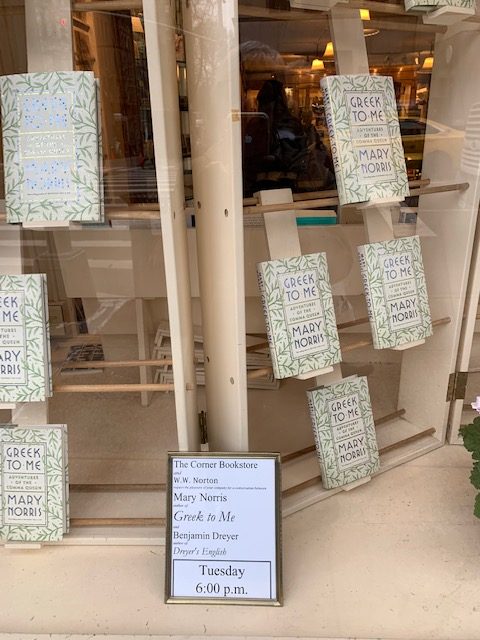 GREEK
TO ME
ADVENTURES
OF THE
COMMA QUEEN
MARY
NORRIS
GREEK
TO ME
ADVENTURES OF
THE COMMA QUEEN
MARY
NORRIS
GREEK
TO ME
ADVENTURES OF
THE COMMA QUEEN
MARY
NORRIS
GREEK
TO ME
MARY
NORRIS
GREEK
TO ME
MARY
NORRIS
GREEK
TO ME
ADVENTURES
OF THE
COMMA QUEEN
MARY
NORRIS
The Corner Bookstore
and
W.W. Norton
request the pleasure of your company for a conversation between
Mary Norris
author of
Greek to Me
and
Benjamin Dreyer
author of
Dreyer's English
Tuesday
6:00 p.m.